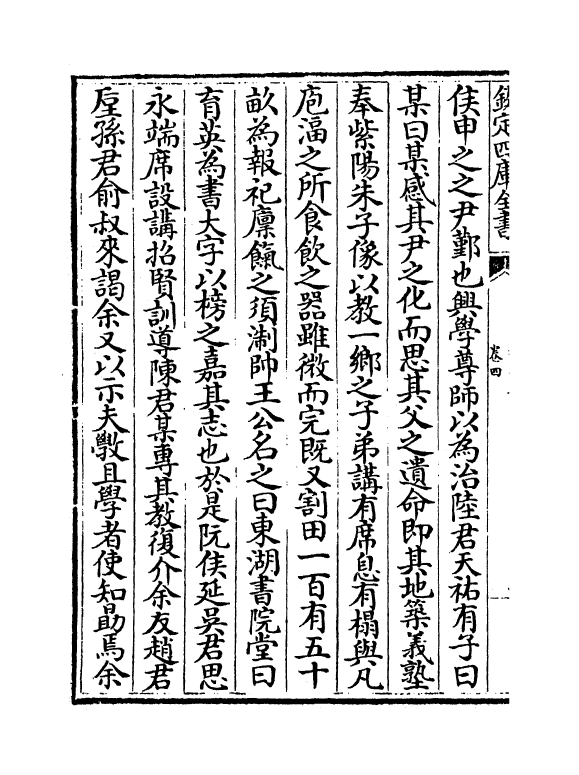 欽定四庫全書
卷四
侯申之之尹鄞也興學尊師以為治陸君天祐有子曰
某曰某感其尹之化而思其父之遺命即其地築義塾
奉紫陽朱子像以教一鄉之子弟講有席息有榻與凡
庖湢之所食飲之器雖微而完既又割田一百有五十
畝為報祀廪餼之須淛帥王公名之曰東湖書院堂曰
育英為書大字以榜之嘉其志也於是阮侯延吳君思
永端席設講招賢訓導陳君某專其教復介余友趙君
垕孫君俞叔來謁余文以示夫斆且學者使知勗焉余